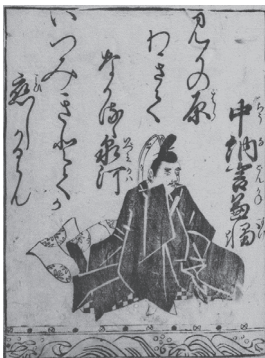 中納言兼輔
みかの原
わきて
ながるゝ泉河
いつみきとてか
恋しかるらん